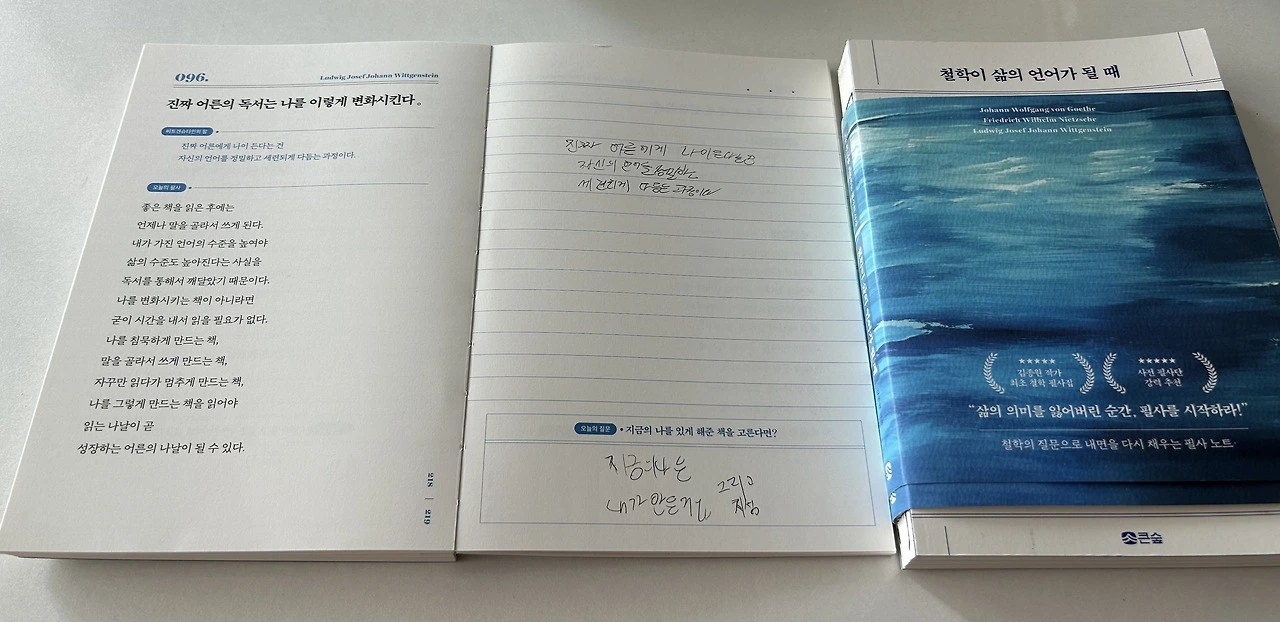 096.
Ludwig Josef Johann Wittgenstein
진짜 어른의 독서는 나를 이렇게 변화시킨다.
비트겐슈타인의 말
진짜 어른에게 나이 든다는 건
자신의 언어를 정밀하고 세련되게 다듬는 과정이다.
오늘의 필사
좋은 책을 읽은 후에는
언제나 말을 골라서 쓰게 된다.
내가 가진 언어의 수준을 높여야
삶의 수준도 높아진다는 사실을
독서를 통해서 깨달았기 때문이다.
나를 변화시키는 책이 아니라면
굳이 시간을 내서 읽을 필요가 없다.
나를 침묵하게 만드는 책,
말을 골라서 쓰게 만드는 책,
자꾸만 읽다가 멈추게 만드는 책,
나를 그렇게 만드는 책을 읽어야
읽는 나날이 곧
성장하는 어른의 나날이 될 수 있다.
218 | 219
진짜 어른에게 나이든다는건
자신의 언어를
다듬는 과정이다
오늘의 질문
지금의 나를 있게 해준 책을 고른다면?
지금의 나는
내가 만든거
철학이 삶의 언어가 될 때
Johann Wolfgang von Goethe
Friedrich Wilhelm Nietzsche
Ludwig Josef Johann Wittgenstein
★★★★★
김종원 작가
최초 철학 필사집
★★★★★
사전 필사단
강력 추천
“삶의 의미를 잃어버린 순간, 필사를 시작하라!”
철학의 질문으로 내면을 다시 채우는 필사 노트
큰숲